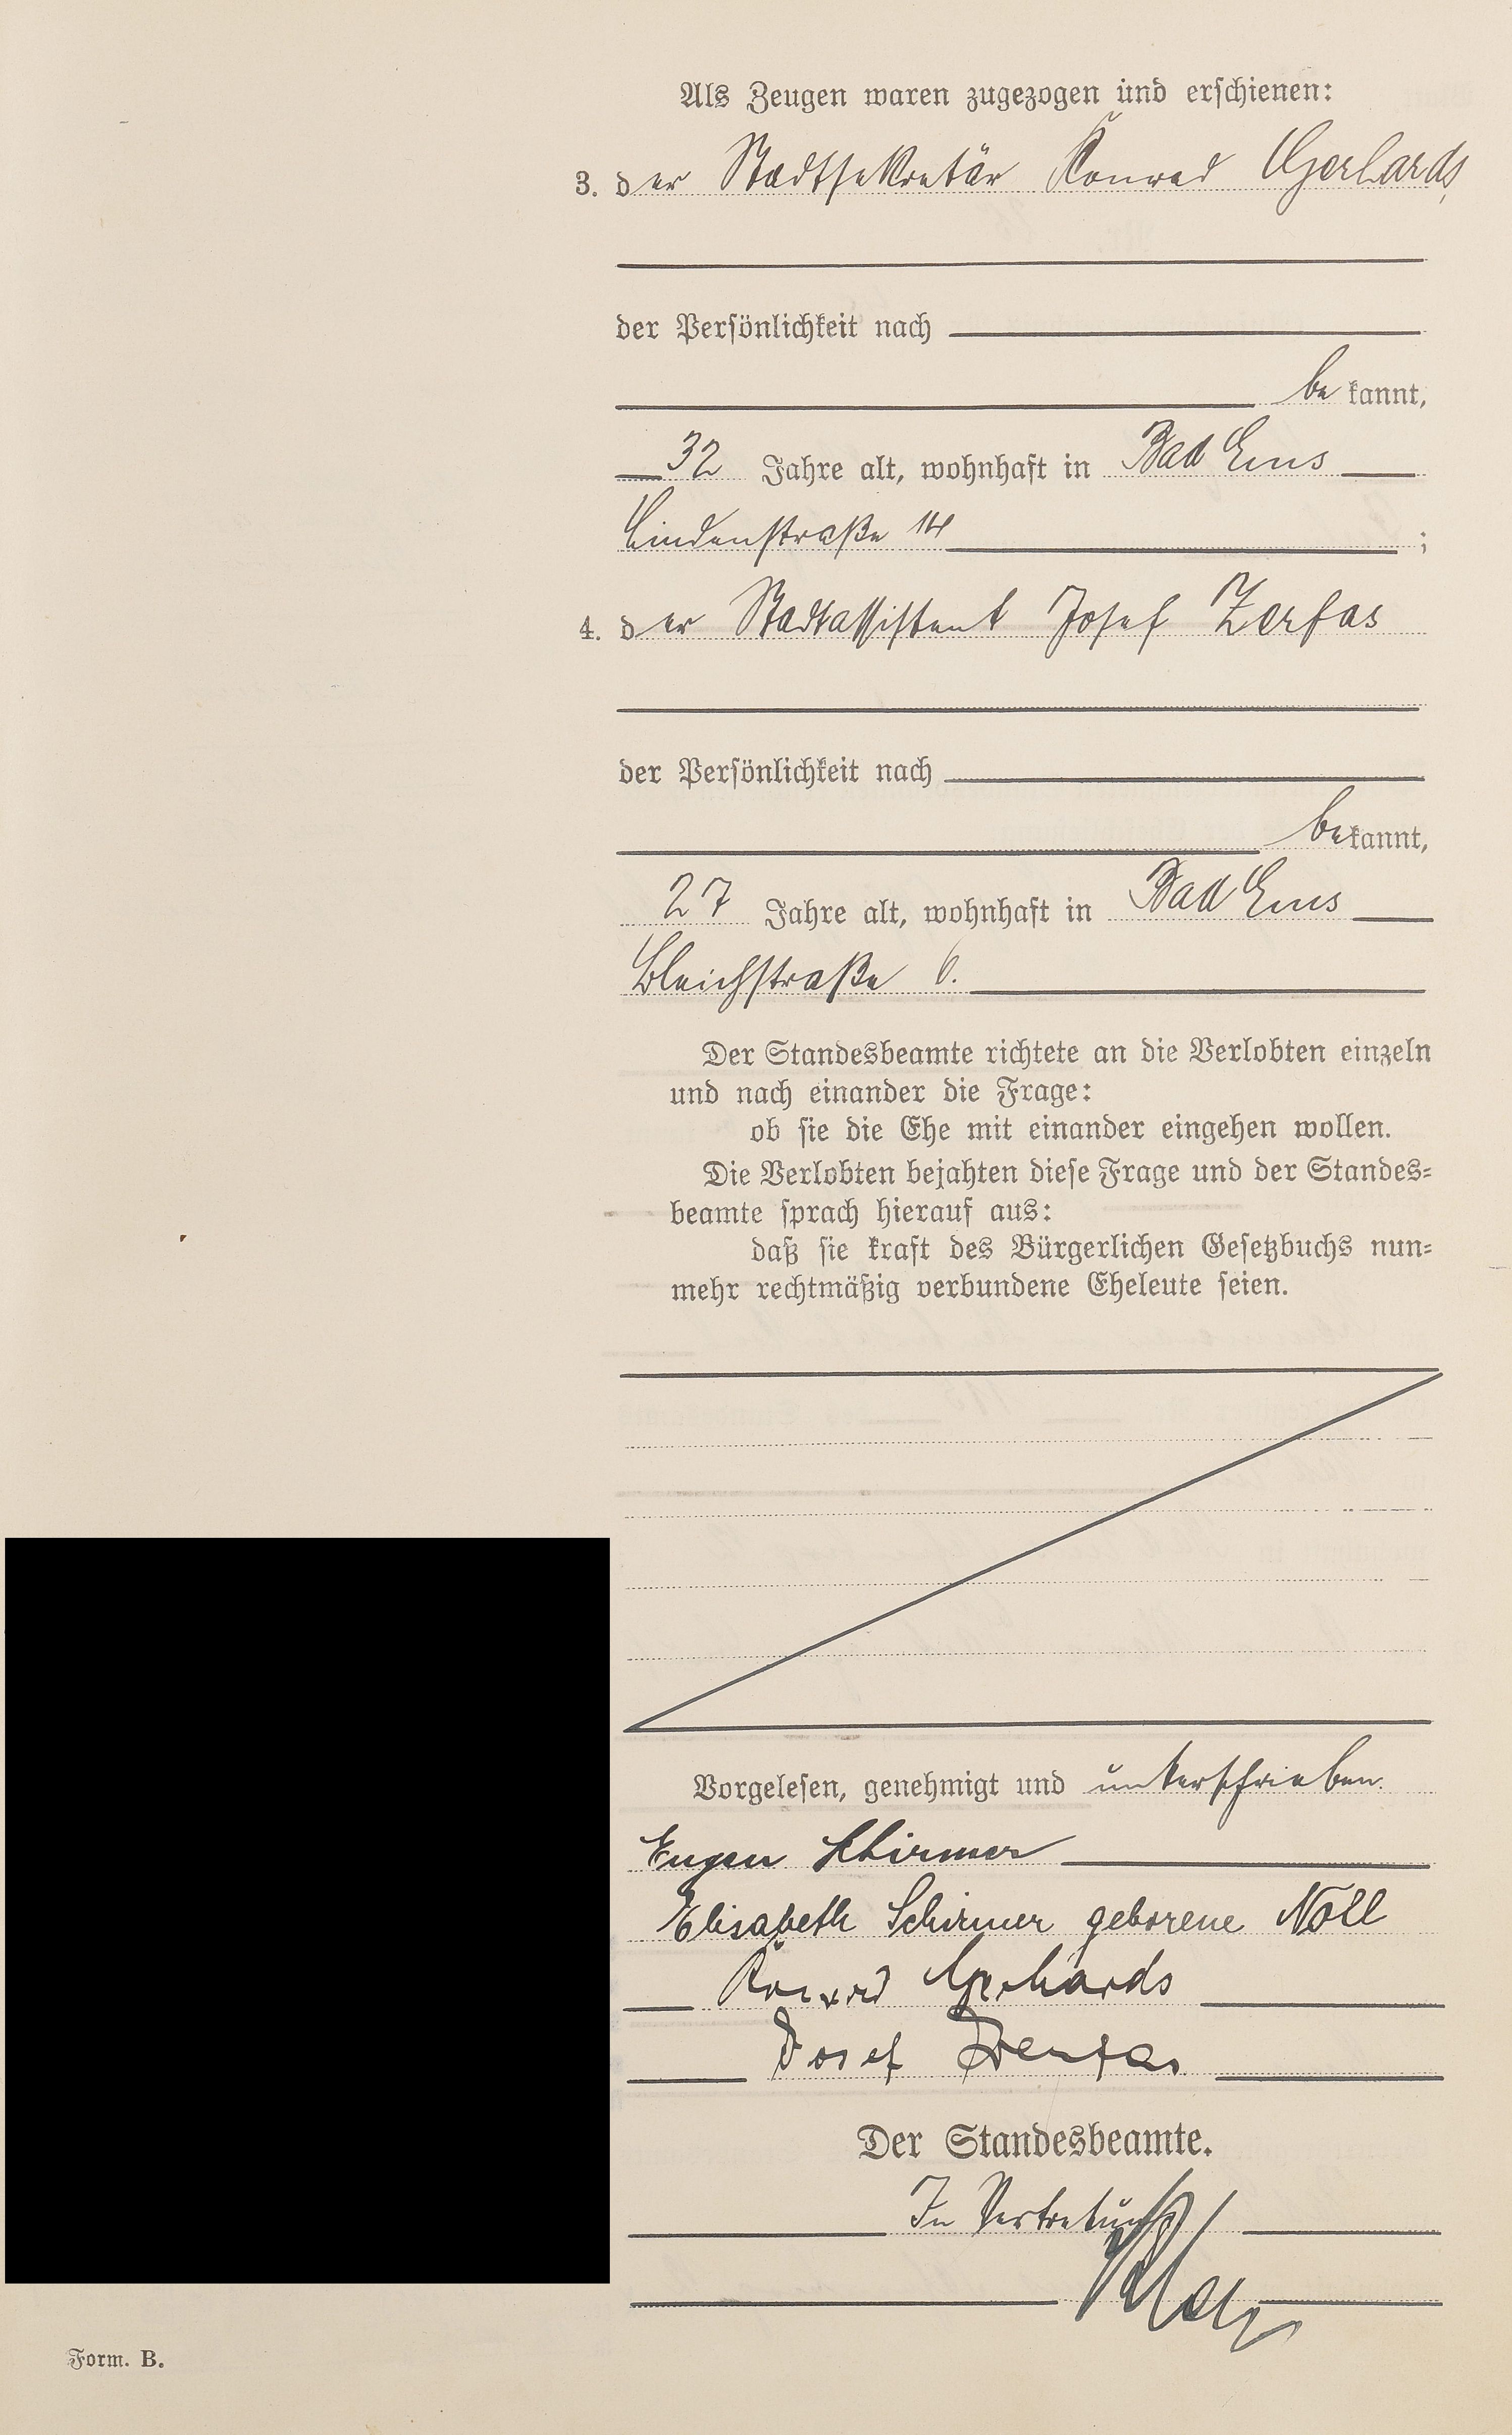 Als Zeugen waren zugezogen und erschienen:
3. der Stadtsekretär Konrad Gerhards,
der Persönlichkeit nach
bekannt,
32 Jahre alt, wohnhaft in Bad Ems
Lindenstraße 14 ;
4. der Stadtassistent Josef Zerfas
der Persönlichkeit nach
bekannt,
27 Jahre alt, wohnhaft in Bad Ems
Bleichstraße 6.
Der Standesbeamte richtete an die Verlobten einzeln
und nach einander die Frage:
ob sie die Ehe mit einander eingehen wollen.
Die Verlobten bejahten diese Frage und der Standes=
beamte sprach hierauf aus:
daß sie kraft des Bürgerlichen Gesetzbuchs nun=
mehr rechtmäßig verbundene Eheleute seien.
Vorgelesen, genehmigt und unterschrieben.
Eugen Schirmer
Elisabeth Schirmer geborene Noll
Konrad Gerhards
Josef Zerfas
Der Standesbeamte.
In Vertretung
Form. B.